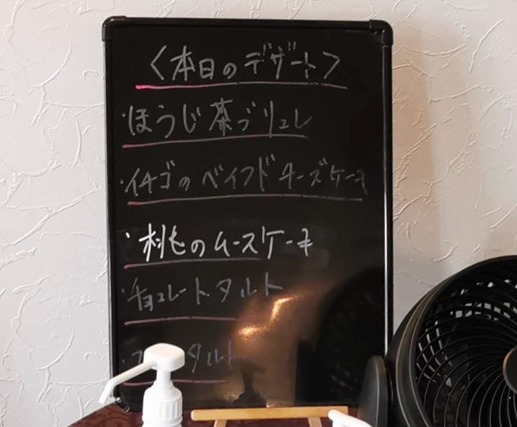 〈本日のデザート〉
・ほうじ茶ブリュレ
・イチゴのベイクドチーズケーキ
・桃のムースケーキ
・チョコレートタルト
タルト